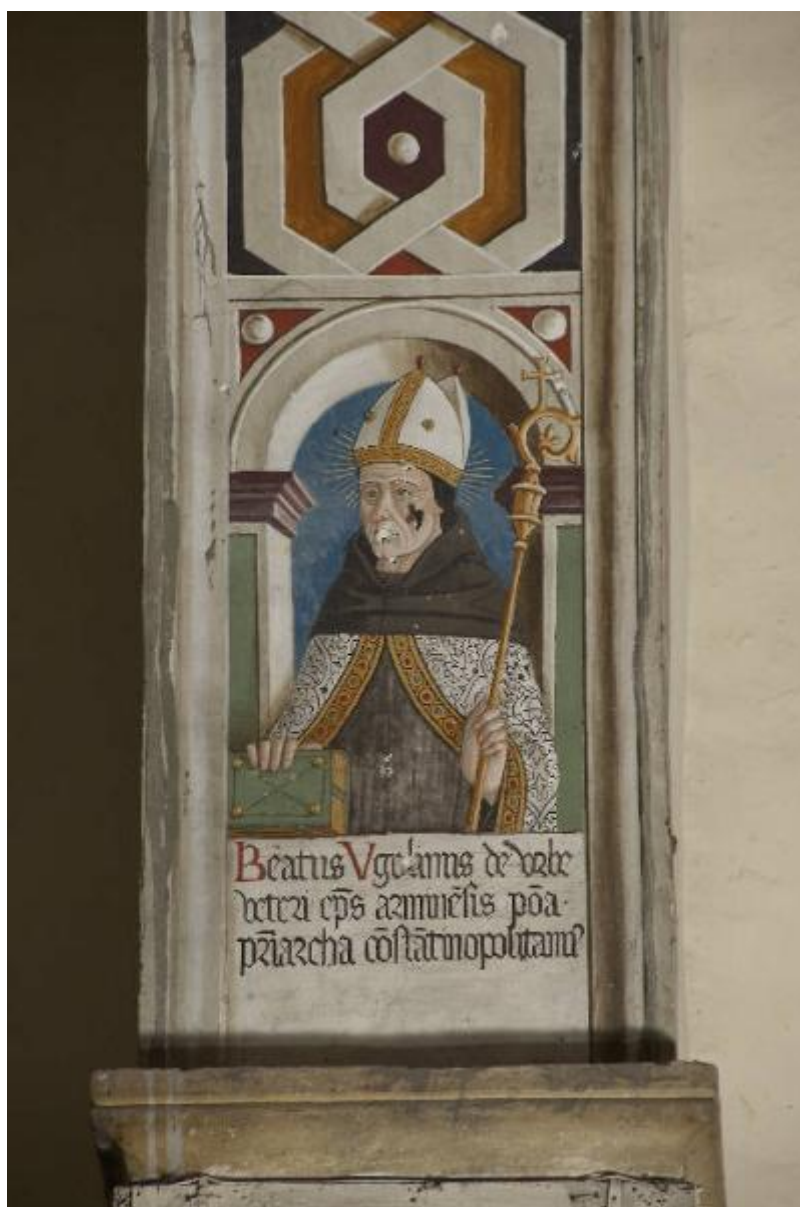 Beatus Vgolinus de vrbe
veteri ep̄s ariminēsis pōa
pr̄iarcha cōstātinopolitanꝰ